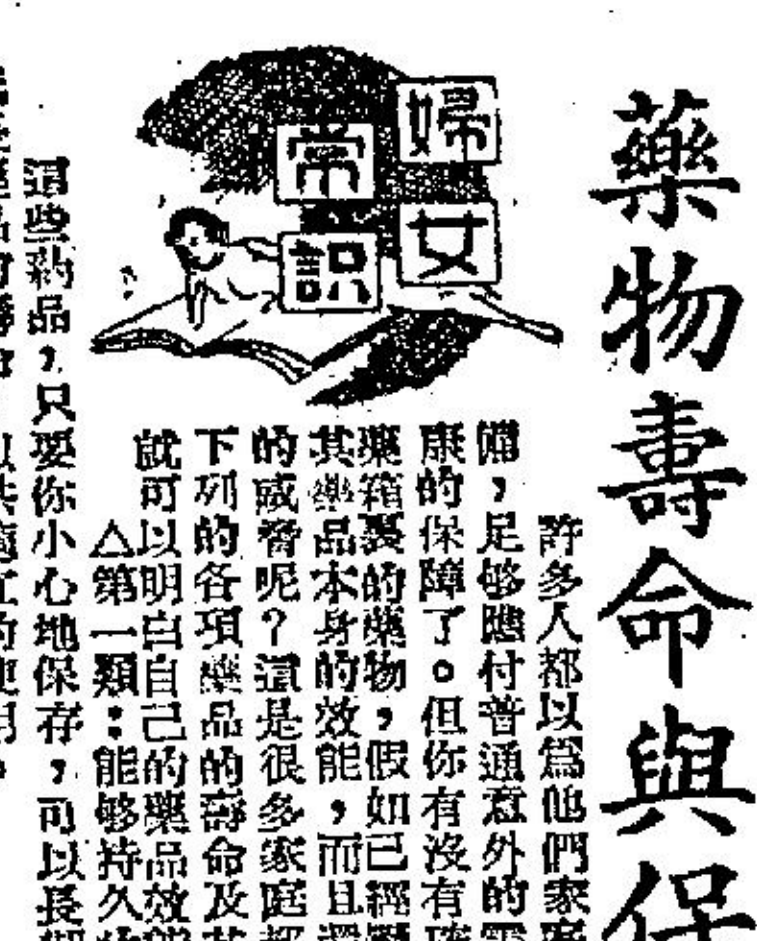 藥物壽命與保
婦女
常識
許多人都以爲他們家
備，足够應付普通意外的
康的保障了。但你有沒有
藥箱裏的藥物，假如已經
其藥品本身的效能，而且還
的威脅呢？這是很多家庭都
下列的各項藥品的壽命及其
就可以明白自己的藥品效能
△第一類：能够持久
這些藥品，只要你小心地保存，可以長期